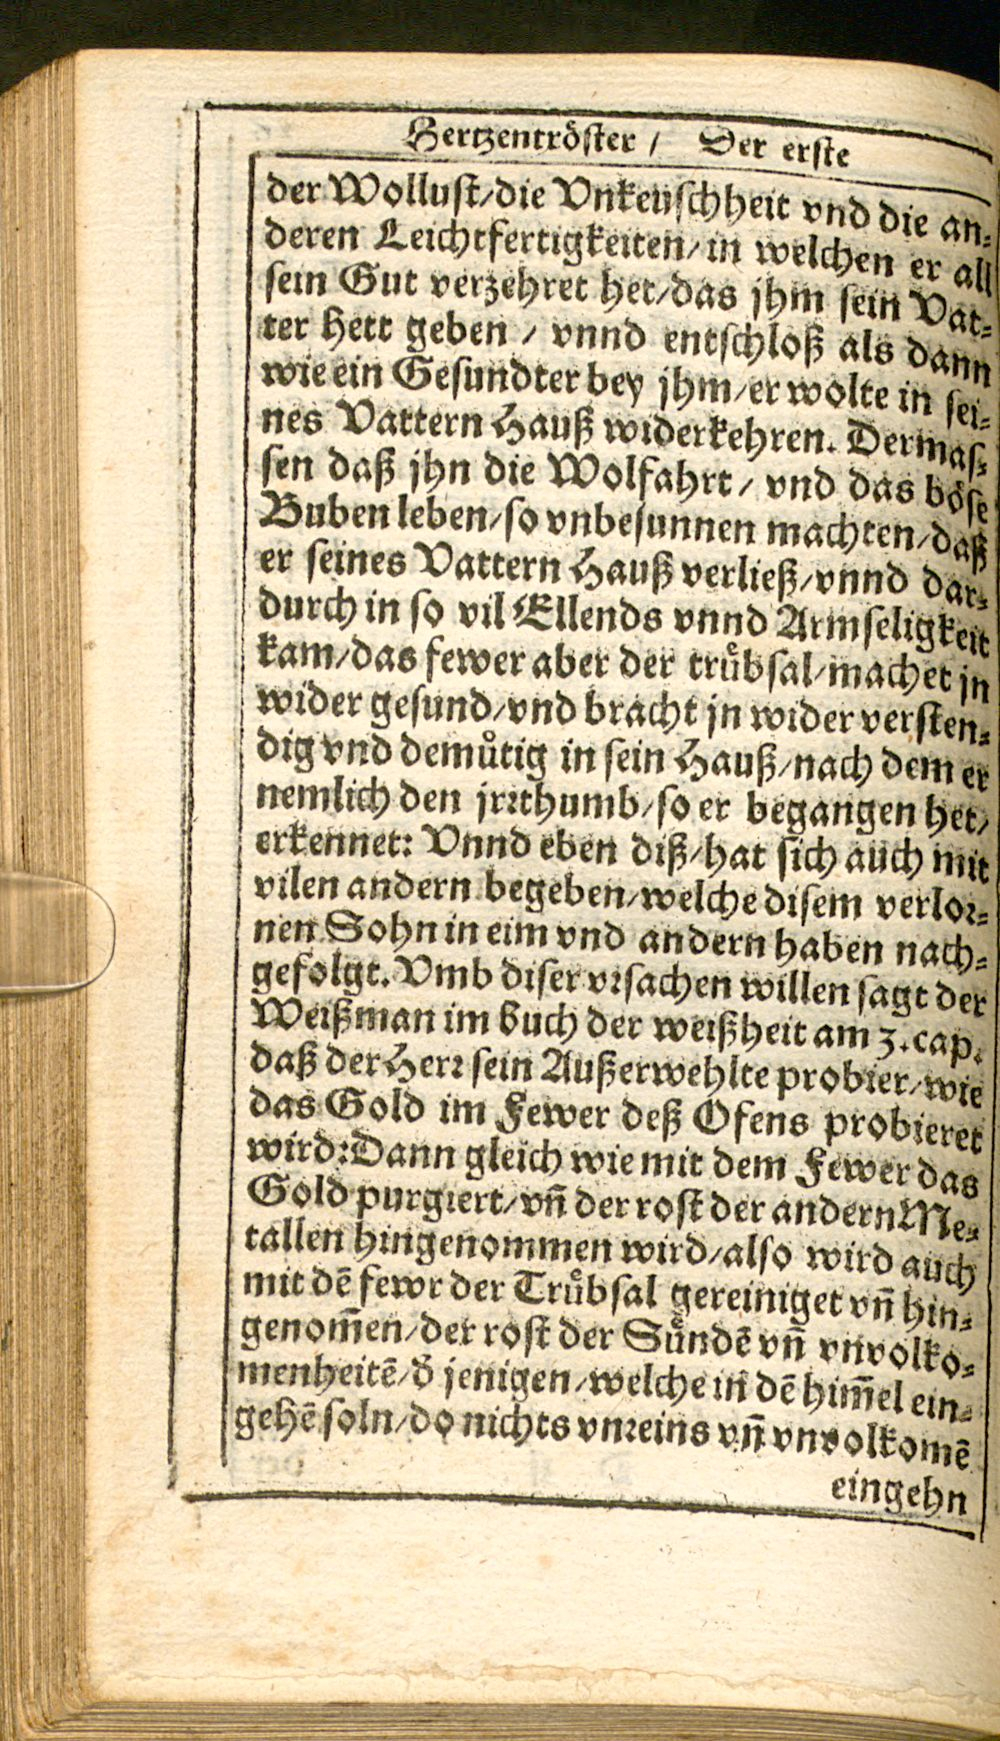 Hertzentröster / Der erste
der Wollust/die Vnkeuschheit vnd die an-
deren Leichtfertigkeiten/in welchen er all
sein Gut verzehret het/das jhm sein Vat-
ter hett geben / vnnd entschloß als dann
wie ein Gesundter bey jhm/er wolte in sei-
nes Vattern Hauß widerkehren. Dermas-
sen daß jhn die Wolfahrt / vnd das böse
Buben leben/so vnbesunnen machten/daß
er seines Vattern Hauß verließ/vnnd dar-
durch in so vil Ellends vnnd Armseligkeit
kam/das fewer aber der trůbsal/machet jn
wider gesund/vnd bracht jn wider versten-
dig vnd demůtig in sein Hauß/nach dem er
nemlich den jrrthumb/so er begangen het/
erkennet: Vnnd eben diß/hat sich auch mit
vilen andern begeben/welche disem verlor-
nen Sohn in eim vnd andern haben nach-
gefolgt. Vmb diser vrsachen willen sagt der
Weißman im buch der weißheit am 3.cap.
daß der Herr sein Außerwehlte probier/wie
das Gold im Fewer deß Ofens probieret
wird:Dann gleich wie mit dem Fewer das
Gold purgiert/vñ der rost der andern Me-
tallen hingenommen wird/also wird auch
mit dẽ fewr der Trůbsal gereiniget vñ hin-
genom̃en/der rost der Sůndẽ vñ vnvolko-
menheitẽ/d̃ jenigen/welche in dẽ him̃el ein-
gehẽ soln/do nichts vnreins vñ vnvolkomẽ
eingehn